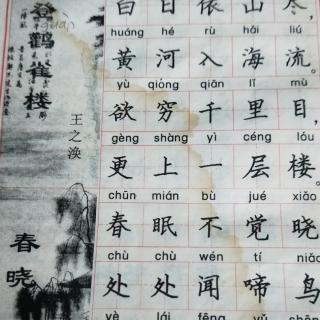 登鹳雀楼
王之涣
白日依山尽，
huáng hé rù hái liú
黄河入海流。
yù qióng qiān lǐ mù
欲穷千里目，
gèng shàng yì céng lóu
更上一层楼。
春晓
chūn mián bù jué xiǎo
春眠不觉晓
chù chù wén tí niǎo
处处闻啼鸟
yè lái fēng yǔ shēng